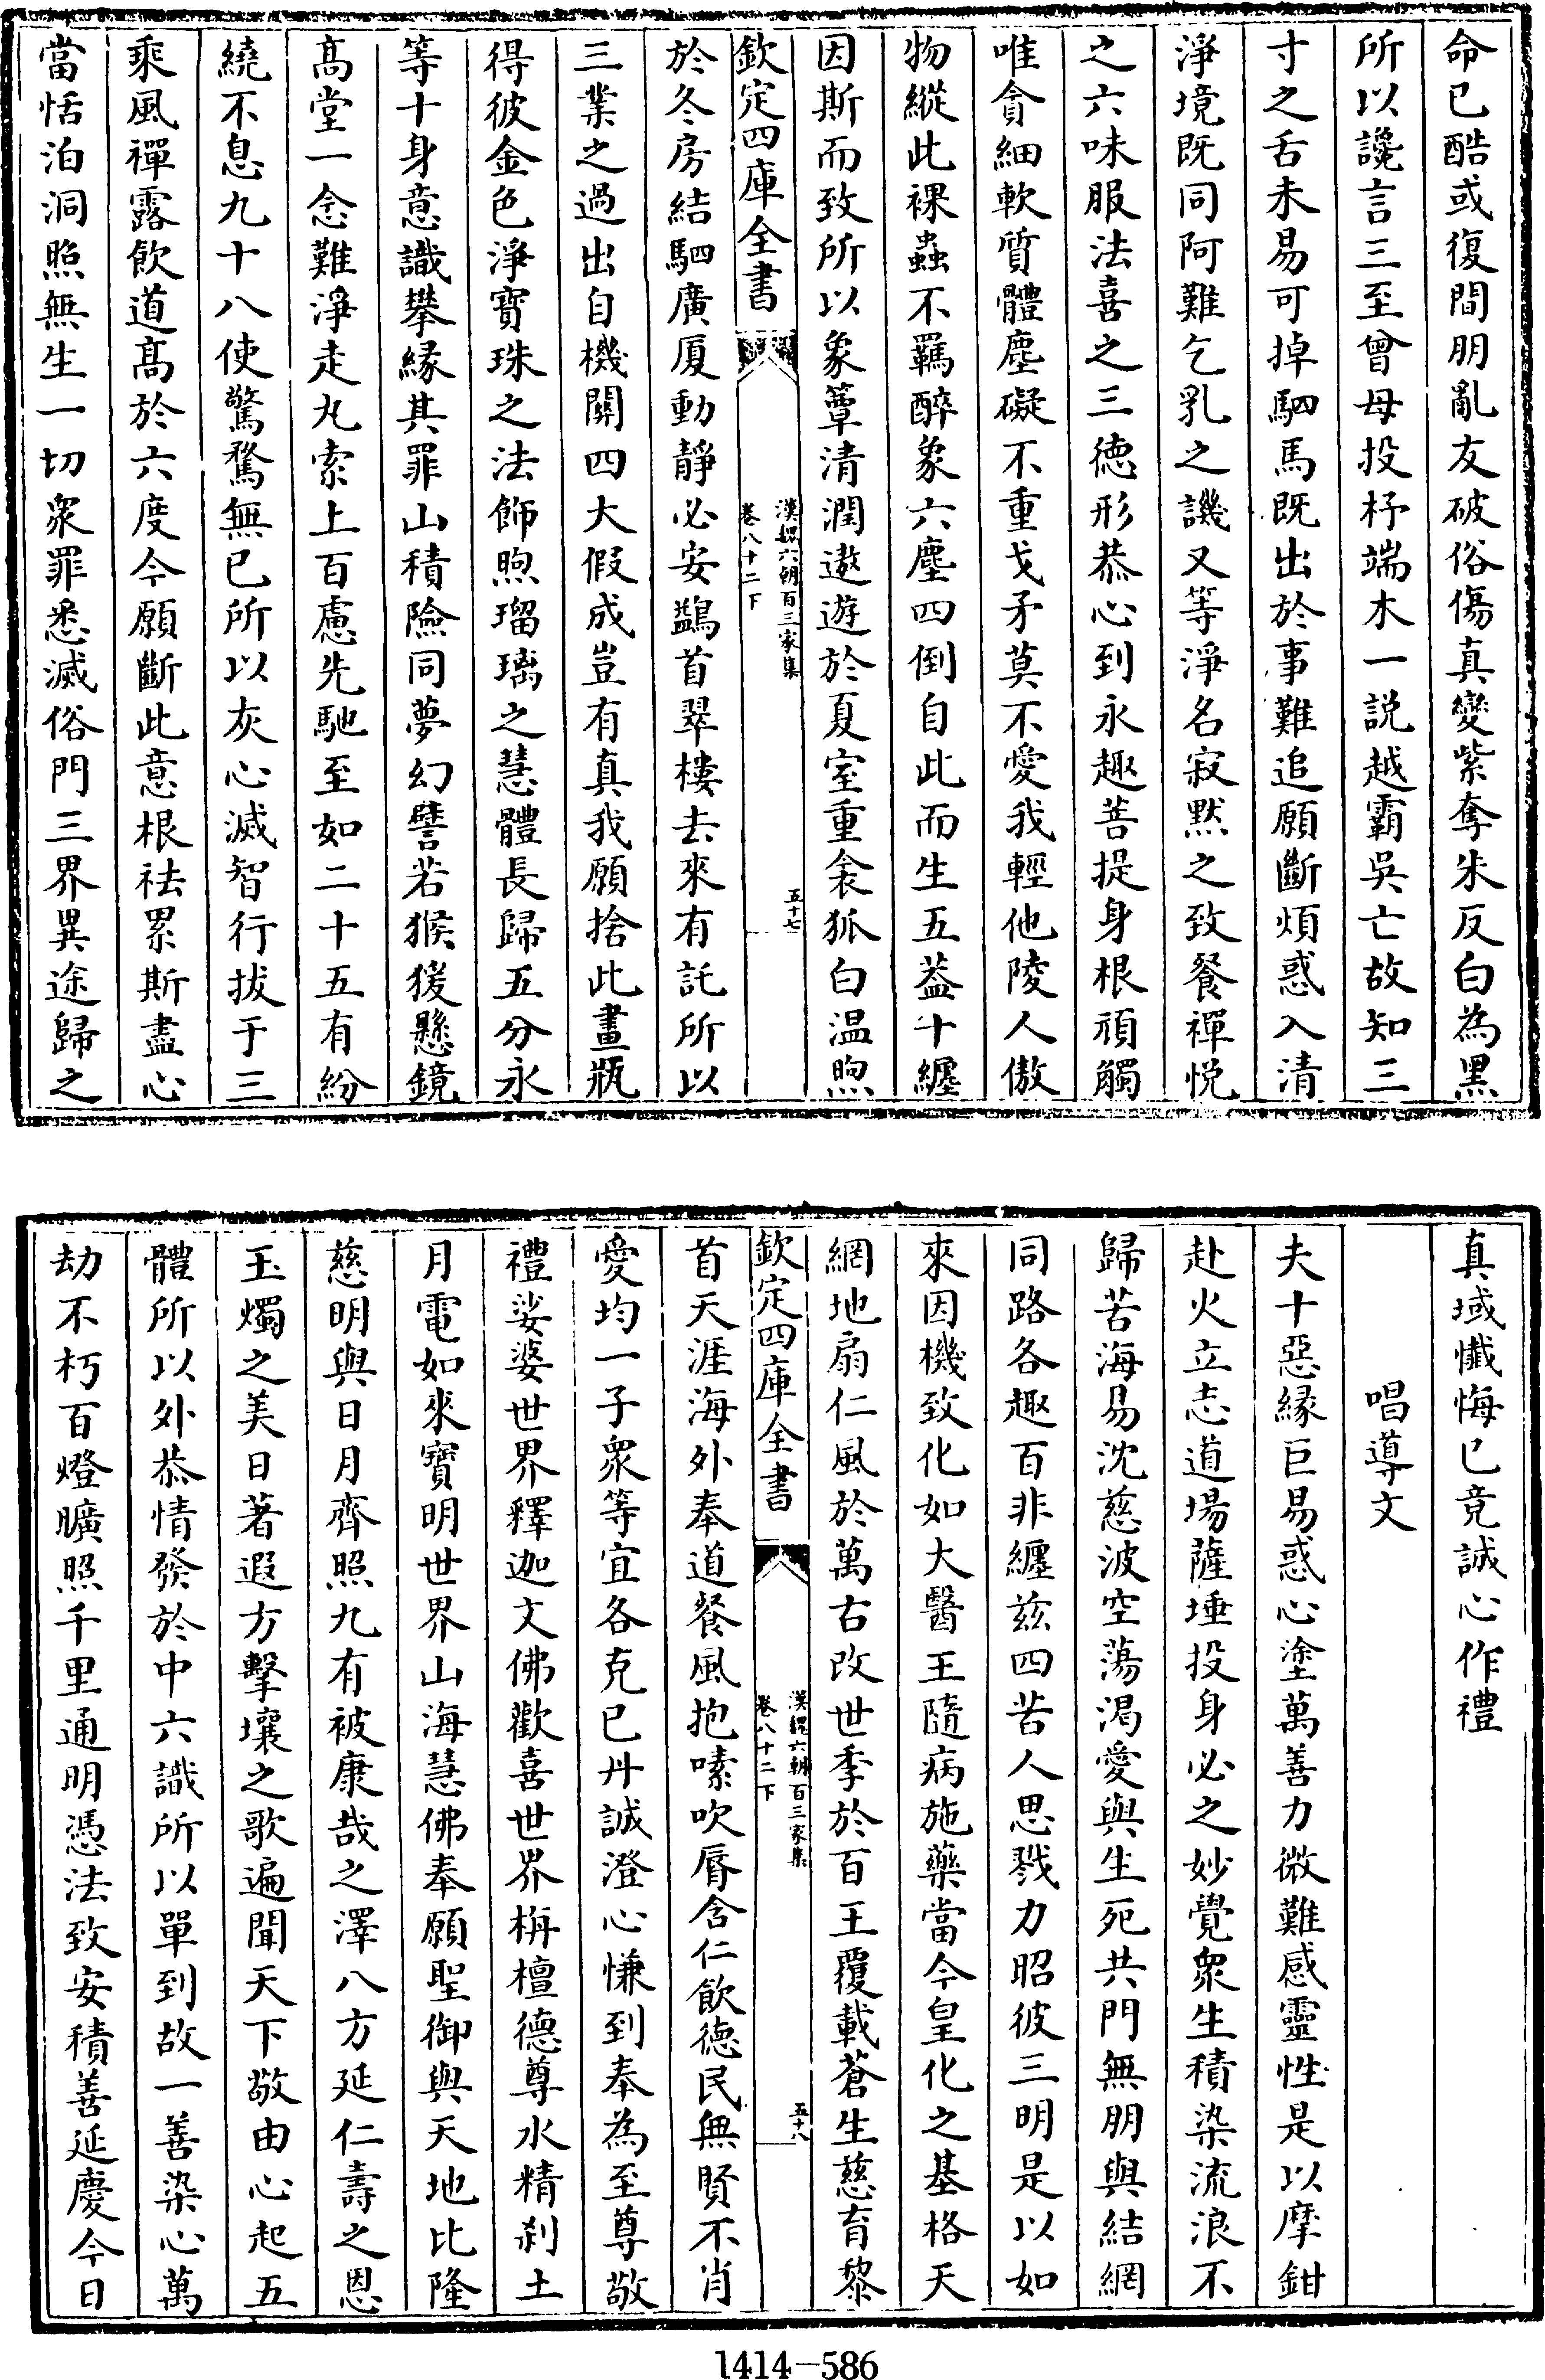 命已酷或復間朋亂友破俗傷真變紫奪朱反白為黑
所以讒言三至曾母投杼端木一説越霸吳亡故知三
寸之舌未易可掉駟馬既出於事難追願斷煩惑入清
淨境既同阿難乞乳之譏又等淨名寂默之致餐禪悦
之六味服法喜之三德形恭心到永趣菩提身根頑觸
唯貪細軟質體塵礙不重戈矛莫不愛我輕他陵人傲
物縱此裸蟲不羈醉象六塵四倒自此而生五葢十纒
因斯而致所以象簟清潤遨遊於夏室重衾狐白温煦
欽定四庫全書
漢魏六朝百三家集
卷八十二下
五十七
於冬房結駟廣厦動靜必安鷁首翠樓去來有託所以
三業之過出自機關四大假成豈有真我願捨此畫瓶
得彼金色淨寶珠之法飾煦瑠璃之慧體長歸五分永
等十身意識攀緣其罪山積險同夢幻譬若猴猨懸鏡
髙堂一念難淨走丸索上百慮先馳至如二十五有紛
繞不息九十八使驚騖無已所以灰心滅智行拔于三
乘風禪露飲道髙於六度今願斷此意根祛累斯盡心
當恬泊洞照無生一切衆罪悉滅俗門三界異途歸之
真域懴悔已竟誠心作禮
唱導文
夫十惡緣巨易惑心塗萬善力微難感靈性是以摩鉗
赴火立志道場薩埵投身必之妙覺衆生積染流浪不
歸苦海易沈慈波空蕩渴愛與生死共門無朋與結網
同路各趣百非纒兹四苦人思戮力昭彼三明是以如
來因機致化如大醫王隨病施藥當今皇化之基格天
網地扇仁風於萬古改世季於百王覆載蒼生慈育黎
欽定四庫全書
漢魏六朝百三家集
卷八十二下
五十八
首天涯海外奉道餐風抱嗉吹脣含仁飲德民無賢不肖
愛均一子衆等宜各克已丹誠澄心慊到奉為至尊敬
禮娑婆世界釋迦文佛歡喜世界栴檀德尊水精刹土
月電如來寶明世界山海慧佛奉願聖御與天地比隆
慈明與日月齊照九有被康哉之澤八方延仁壽之恩
玉燭之美日著遐方擊壤之歌遍聞天下敬由心起五
體所以外恭情發於中六識所以單到故一善染心萬
劫不朽百燈曠照千里通明憑法致安積善延慶今日
1414—586